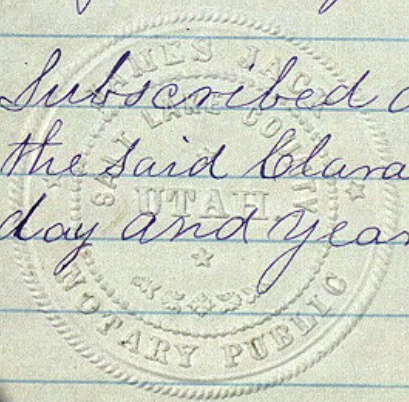 Subscribed a
the said Clara
day and year
JAMES JACK
SALT LAKE COUNTY
UTAH.
NOTARY PUBLIC